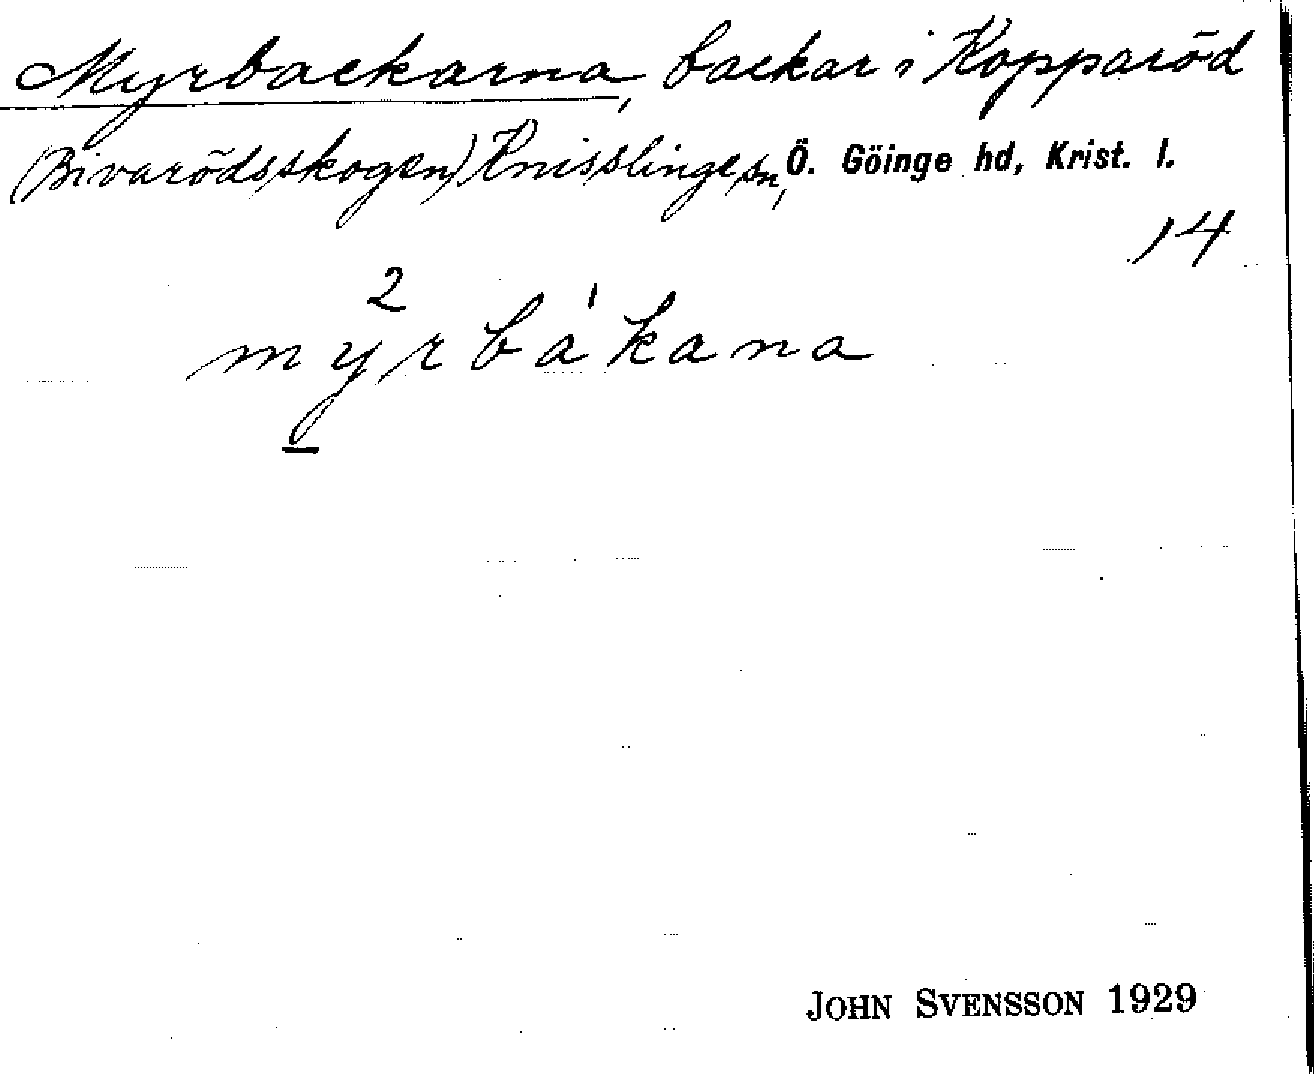 Myrbackarna, backar i Kopparöd
(Bivarödsskogen) Knisslinge sn, Ö. Göinge hd, Krist. l.
14
2
mýrbákana
JOHN SVENSSON 1929